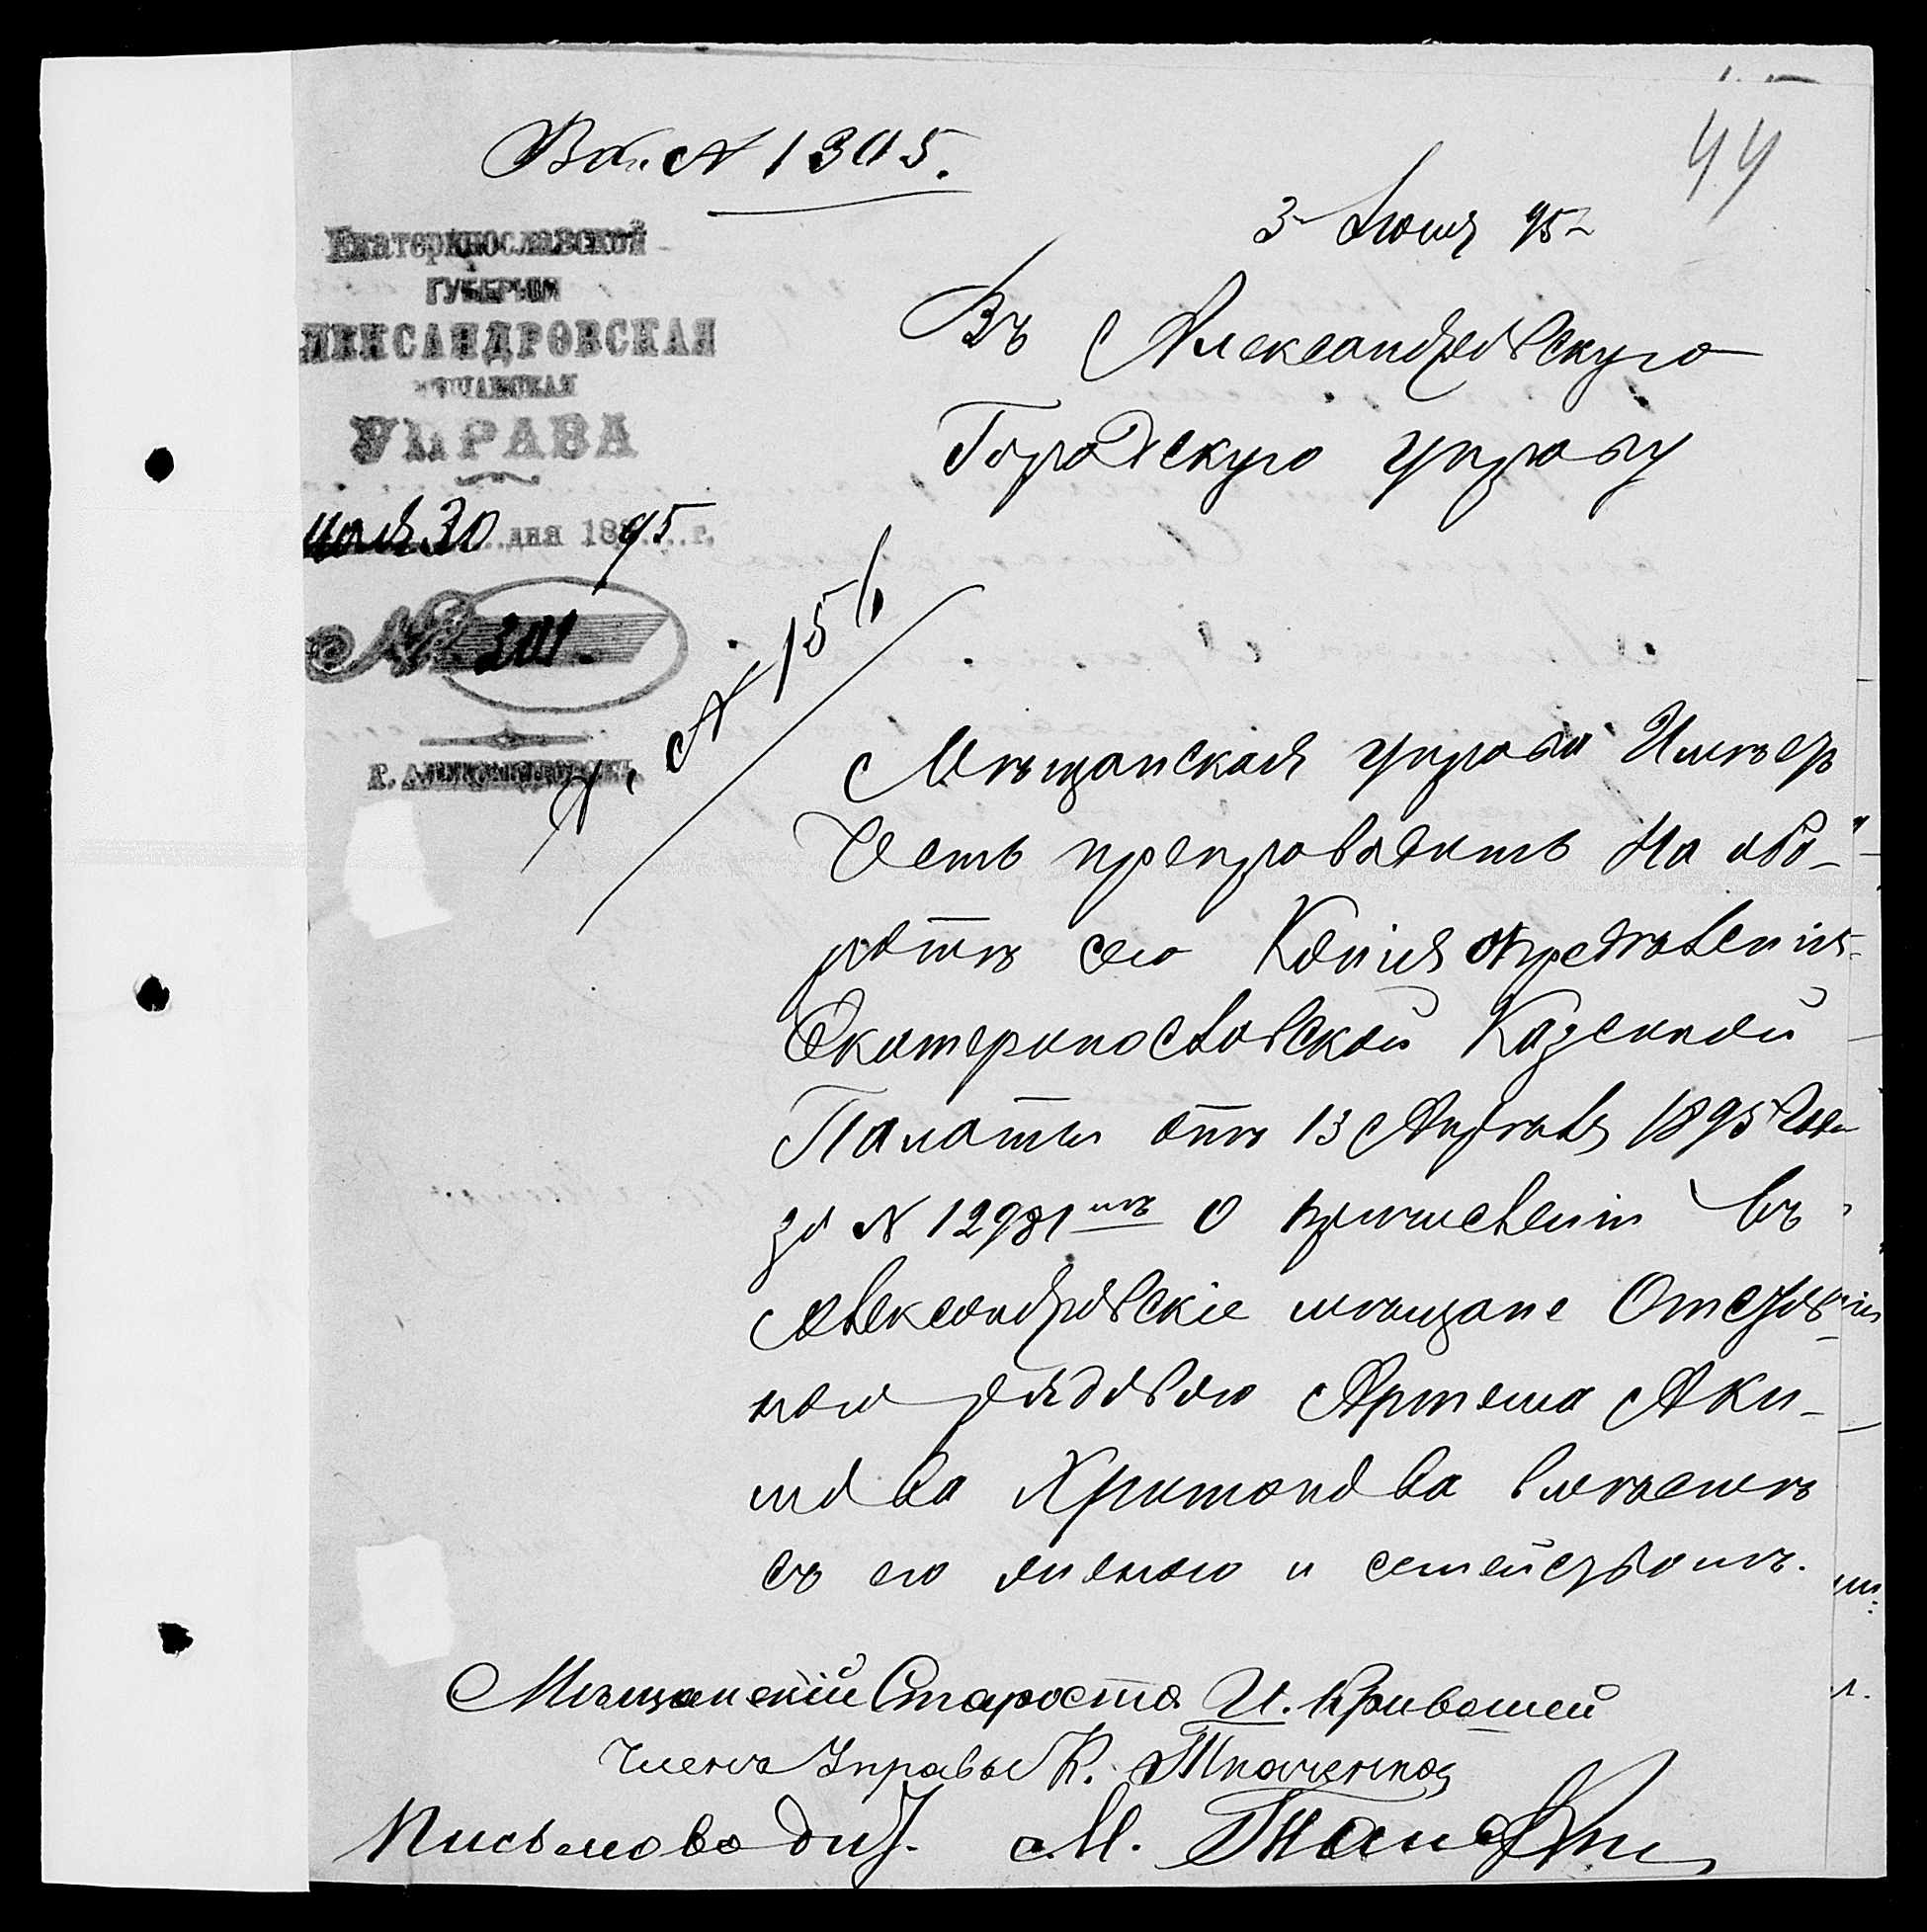 Вх. № 1305.
44
3 Июня 95
Екатеринославской
ГУБЕРНІИ
АЛЕКСАНДРОВСКАЯ
МѢЩАНСКАЯ
УПРАВА
30 дня 1895 г.
№ 301.
г. Александровскъ
№ 156
Въ Александровскую
Городскую управу
Мѣщанская управа Имѣетъ
Честь препроводить На обо-
ротѣ сего Копія опредѣленія
Екатеринославской Казенной
Палаты отъ 13 Апрѣля 1895 Года
за № 12981мъ О причисленіи въ
Александровскіе мѣщане Отстав
ного рядового Артема Аки-
мова Харитонова вмѣстѣ
съ его женою и семействомъ.
Мѣщанскій Староста И. Кривошей
Членъ Управы К. Ткаченко
Письмоводит. М.